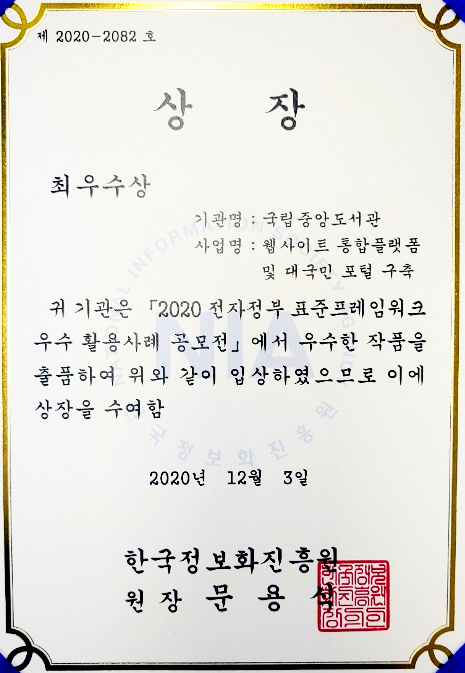 제 2020-2082 호
상 장
최우수상
기관명 : 국립중앙도서관
사업명 : 웹사이트 통합플랫폼
및 대국민 포털 구축
귀 기관은 「2020 전자정부 표준프레임워크
우수 활용사례 공모전」에서 우수한 작품을
출품하여 위와 같이 입상하였으므로 이에
상장을 수여함
NATIONAL INFORMATION SOCIETY AGENCY
NIA
한국정보화진흥원
2020년 12월 3일
한국정보화진흥원
원 장 문 용 식